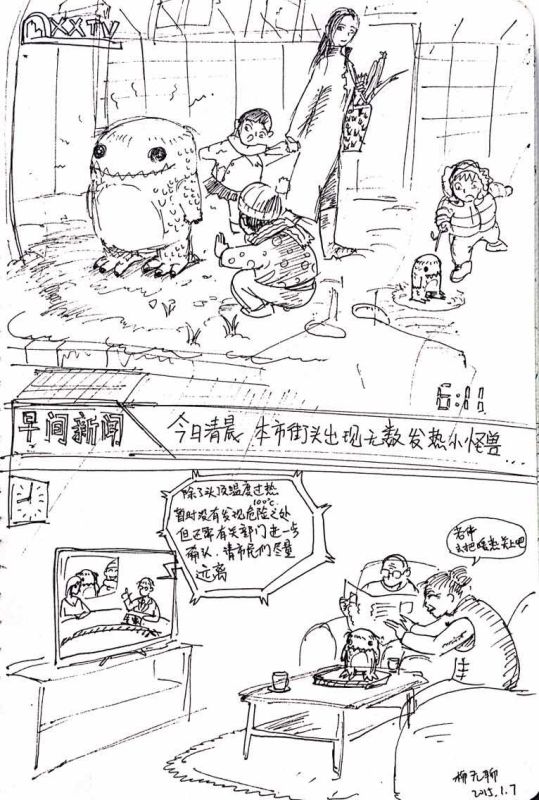 XXTV
6:11
早间新闻
今日清晨 本市街头出现无数发热小怪兽...
除了头顶温度过热
100℃
暂时没有发现危险之处
但还需有关部门进一步
确认，请市民们尽量
远离
老伴
去把暖热关上吧
柳无聊
2015.1.7